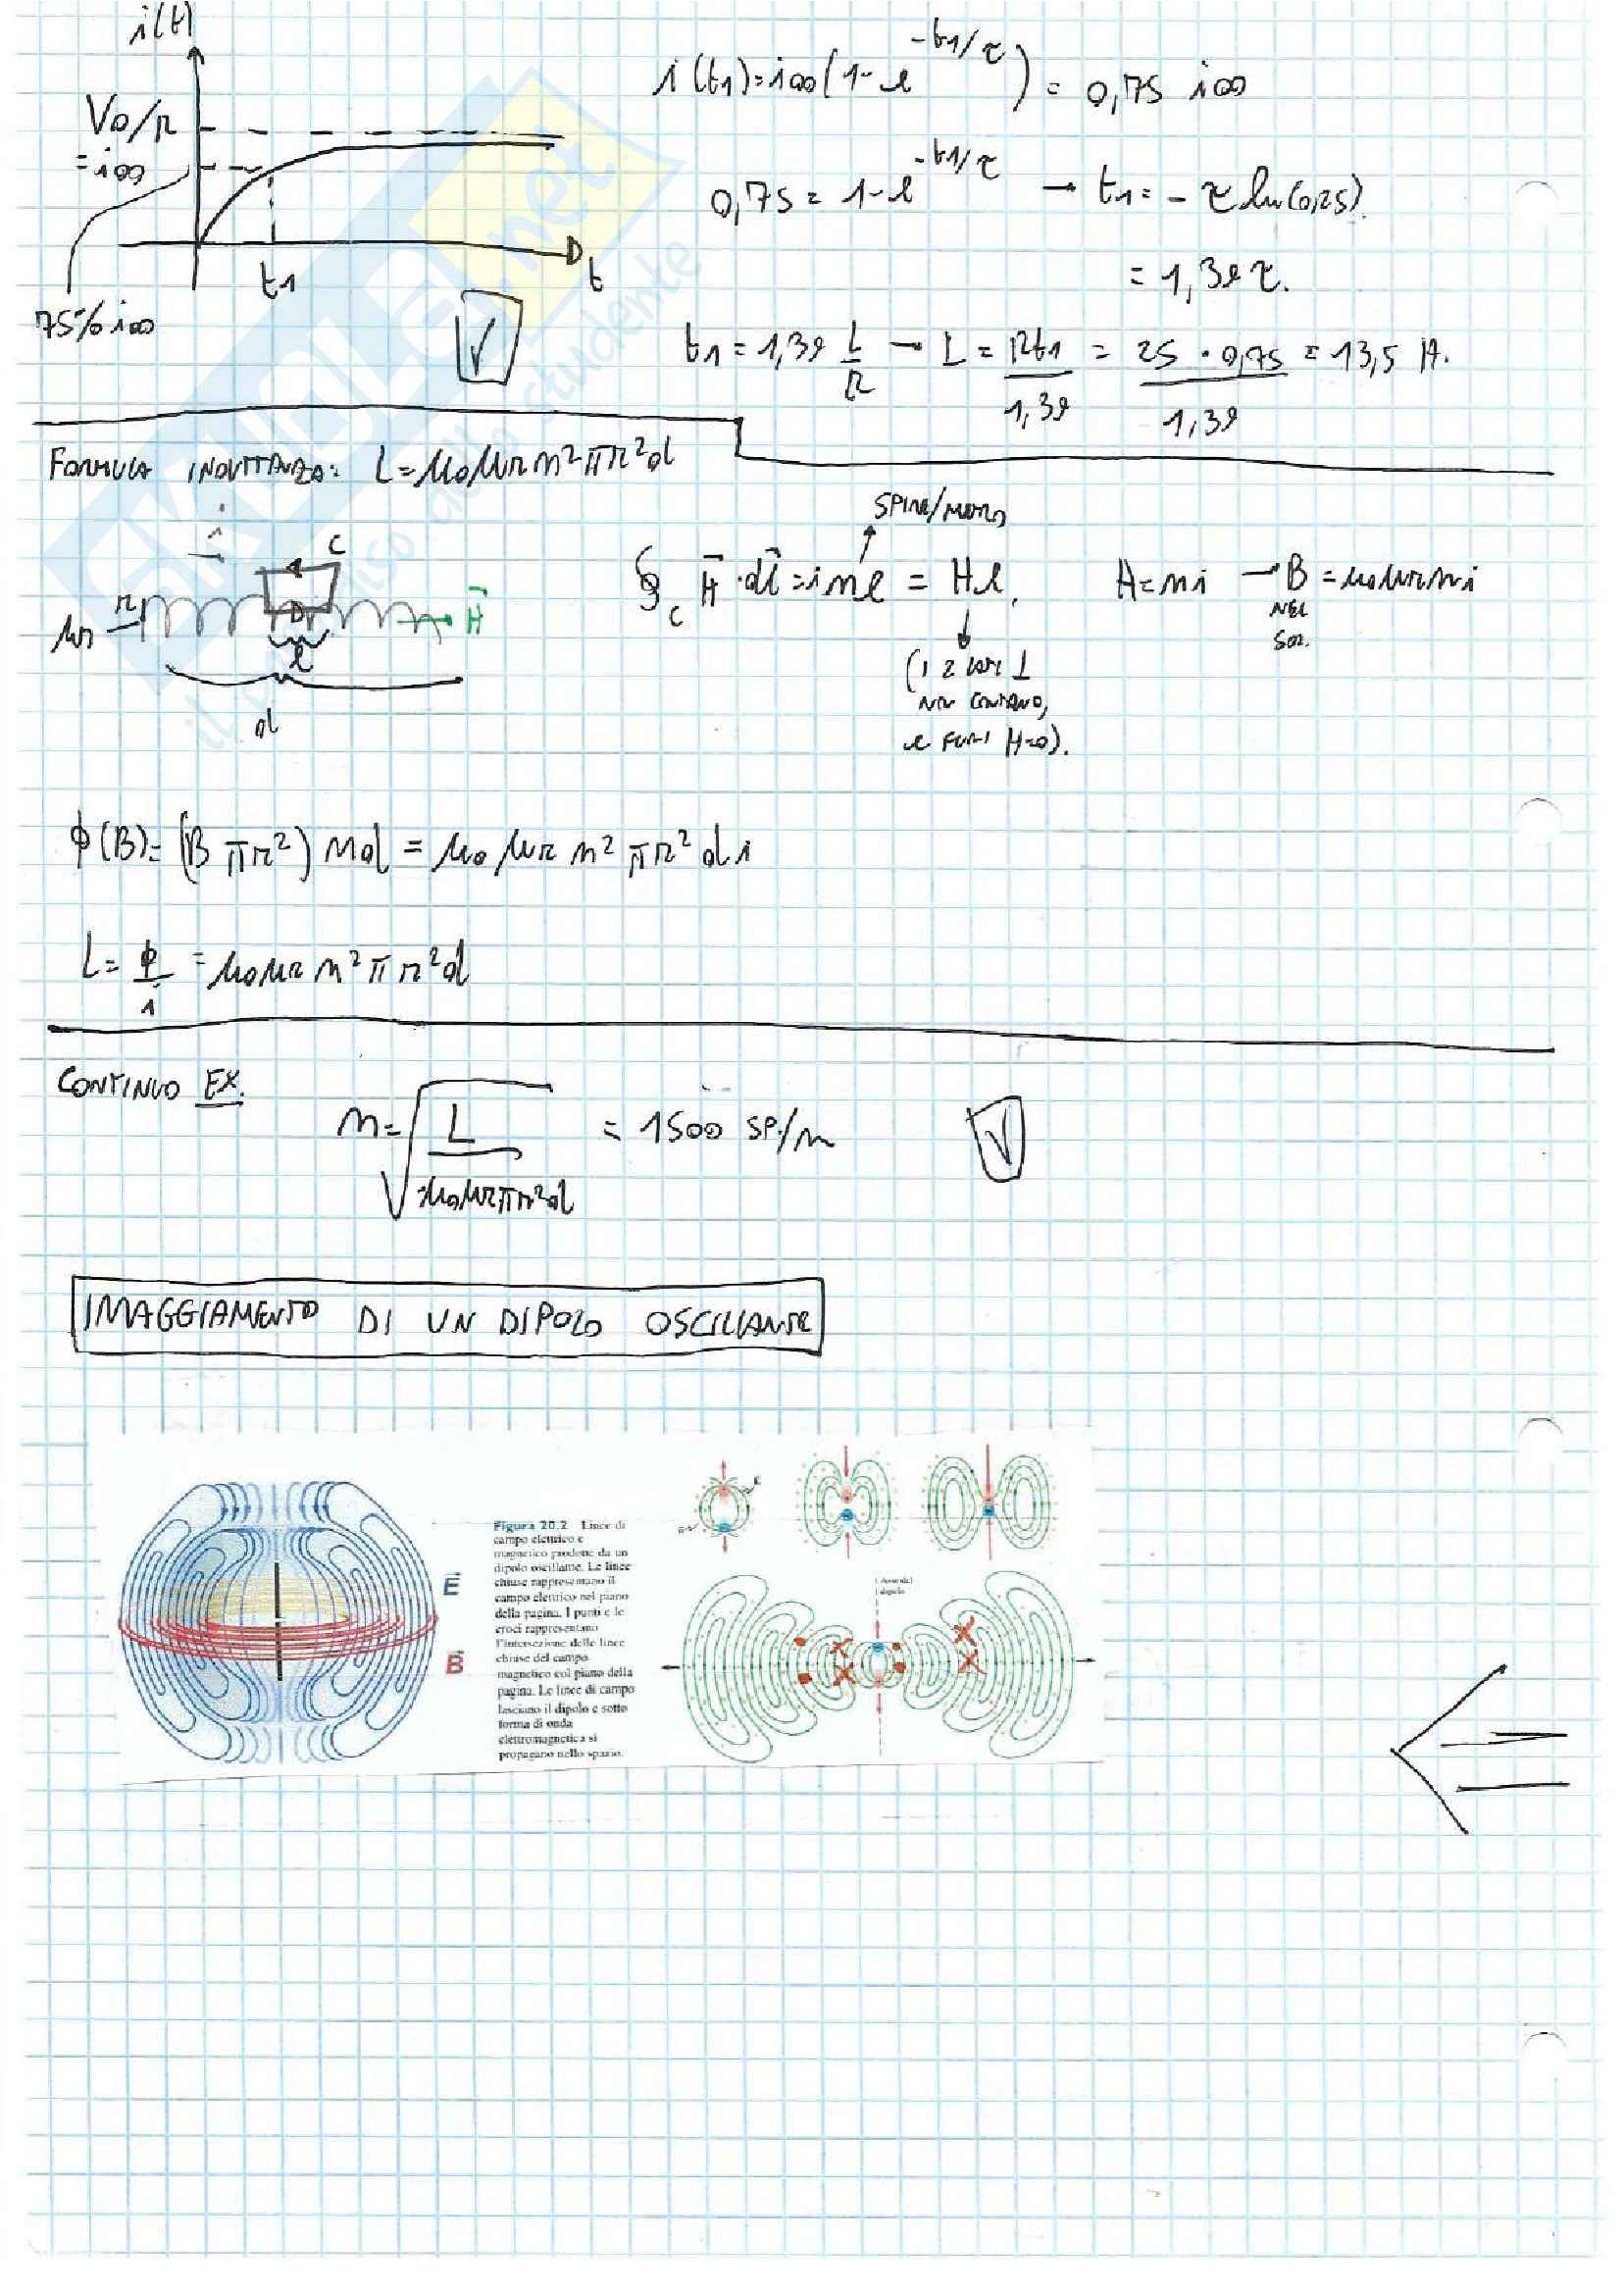 i(t)
V0/R
= i∞
75% i∞
t1
t
i(t1)=i∞(1-e^-t1/τ) = 0,75 i∞
0,75 = 1-e^-t1/τ → t1 = -τ ln(0,25).
= 1,39 τ.
t1 = 1,39 L/R → L = Rt1/1,39 = 25 · 0,75/1,39 = 13,5 H.
FORMULA INDUTTANZA: L=μ0μr n²πr²d
i
C
r
μr
H
l
d
SPIRE/METRO
∮C H·dl = i n l = H l.
H = ni → B = μ0μr n i
NEL
SOL.
(I 2 LATI ⊥
NON CONTANO,
E FUORI H=0).
ϕ(B)= (B πr²) nd = μ0 μr n² πr² d i
L = ϕ/i = μ0μr n² π r² d
CONTINUO EX.
n = √L/μ0μrπr²d = 1500 SP./m
IRRAGGIAMENTO DI UN DIPOLO OSCILLANTE
E
B
Figura 20.2 Linee di
campo elettrico e
magnetico prodotte da un
dipolo oscillante. Le linee
chiuse rappresentano il
campo elettrico nel piano
della pagina. I punti e le
croci rappresentano
l'intersezione delle linee
chiuse del campo
magnetico col piano della
pagina. Le linee di campo
lasciano il dipolo e sotto
forma di onda
elettromagnetica si
propagano nello spazio.
Asse del
dipolo
SKUOLA.net